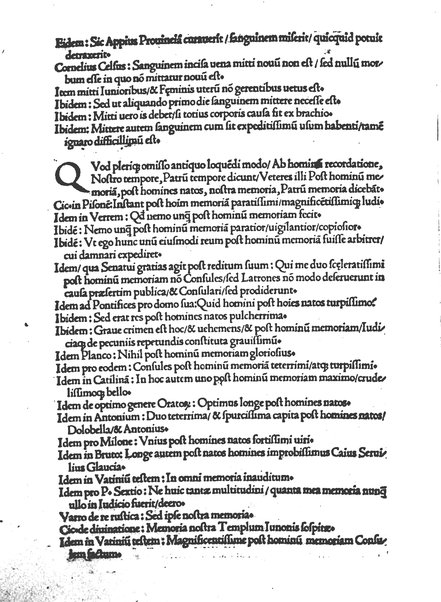 Eidem: Sic Appius Prouinciã curauerit/ sanguinem miserit/ quicquid potuit
detraxerit.
Cornelius Celsus: Sanguinem incisa uena mitti nouũ non est / sed nullũ mor-
bum esse in quo nõ mittatur nouũ est.
Item mitti Iunioribus/& Feminis uterũ nõ gerentibus uetus est.
Ibidem: Sed ut aliquando primo die sanguinem mittere necesse est.
Ibidem: Mitti uero is debet/si totius corporis causa fit ex brachio.
Ibidem: Mittere autem sanguinem cum sit expeditissimũ usum habenti/tamẽ
ignaro difficillimũ est.
QVod pleriq; omisso antiquo loquẽdi modo/ Ab hominũ recordatione,
Nostro tempore, Patrũ tempore dicunt/Veteres illi Post hominũ me-
moriã, post homines natos, nostra memoria, Patrũ memoria dicebãt.
Cic.in Pisonẽ: Instant post hoim memoriã paratissimi/magnificẽtissimiq; ludi.
Idem in Verrem: Qd nemo unq̃ post hominũ memoriam fecit.
Ibidẽ: Nemo unq̃ post hominũ memoriã paratior/uigilantior/copiosior.
Ibidẽ: Vt ego hunc unũ eiusmodi reum post hominũ memoriã fuisse arbitrer/
cui damnari expediret.
Idem/ qua Senatui gratias agit post reditum suum: Qui me duo sceleratissimi
post hominum memoriam nõ Consules/sed Latrones nõ modo deseruerunt in
causa præsertim publica/& Consulari/sed prodiderunt.
Idem ad Pontifices pro domo sua: Quid homini post hoies natos turpissimo.
Ibidem: Sed erat res post homines natos pulcherrima.
Ibidem: Graue crimen est hoc/& uehemens/& post hominũ memoriam/Iudi-
ciaq; de pecuniis repetundis constituta grauissimũ.
Idem Planco: Nihil post hominũ memoriam gloriosius.
Idem pro eodem: Consules post hominũ memoriã teterrimi/atq; turpissimi.
Idem in Catilinã: In hoc autem uno post hominũ memoriam maximo/crude-
lissimoq; bello.
Idem de optimo genere Oratoꝝ: Optimus longe post homines natos.
Idem in Antonium: Duo teterrima/& spurcissima capita post homines natos/
Dolobella/& Antonius.
Idem pro Milone: Vnius post homines natos fortissimi uiri.
Idem in Bruto: Longe autem post natos homines improbissimus Caius Serui-
lius Glaucia.
Idem in Vatiniũ testem: In omni memoria inauditum.
Idem pro P. Sextio: Ne huic tantæ multitudini / quanta mea memoria nunq̃
ullo in Iudicio fuerit/ deeo.
Varro de re rustica: Sed ipse nostra memoria.
Cic.de diuinatione: Memoria nostra Templum Iunonis sospitæ.
Idem in Vatiniũ testem: Magnificentissime post hominũ memoriam Consu-
lem factum.